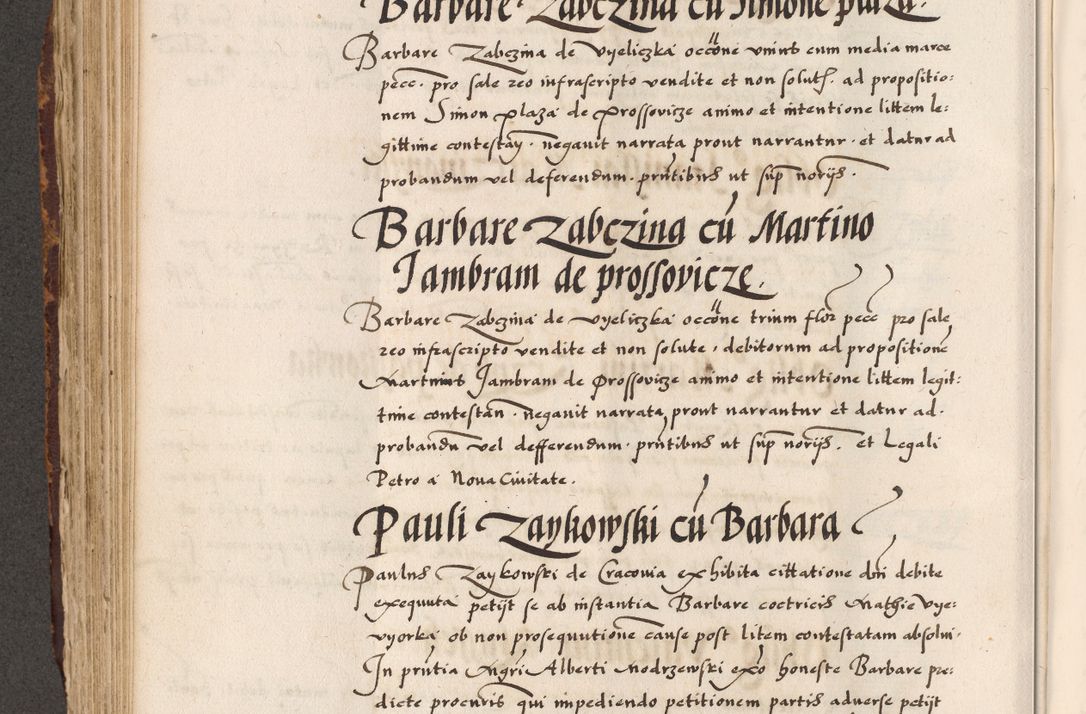 Barbare Zabczina cū Simone plaza.
Barbare Zabczina de Vyeliczka occōne unius cum media marce
pecc. pro sale reo infrascripto vendite et non solut. ad propositio:
nem Simon plaza de Prossovicze animo et intentione littem le:
gittime contestaṅ. negavit narrata prout narrantur. et datur ad
probandum vel deferendum. prñtibus ut sup norijs.
Barbare Zabczina cū Martino
Jambram de prossovicze.
Barbare Zabczina de Vyeliczka occōne trium flor pecc pro sale
reo infrascripto vendite et non solute, debitorum ad propositionē
Martinus Jambram de Prossovicze animo et intentione littem legit:
time contestan. negavit narrata prout narrantur et datur ad.
probandū vel defferendum. prñtibus ut sup norijs. et Legali
Petro a Nova Civitate.
Pauli Zaykowski cū Barbara
Paulus Zaykowski de Cracovia exhibita cittatione dñi debite
exequuta petijt se ab instantia Barbare coctricis Mathie Vye:
vyorka ob non prosequutionē cause post litem contestatam absolvi.
In prñtia Mgri Alberti Modrzewski exo honeste Barbare pre:
dicte procuris qui impediendo petitionem partis adverse petijt